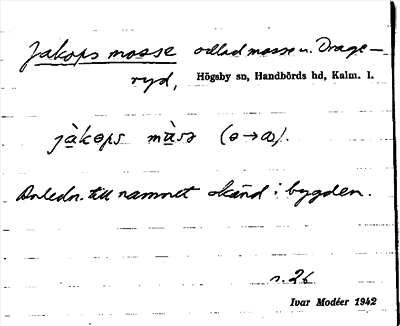 Jakops mosse odlad mosse u. Drage-
ryd, Högsby sn, Handbörds hd, Kalm. l.
jàkɵps màsɘ (ɵ→a).
Anledn. till namnet okänd i bygden.
s. 26
Ivar Modéer 1942